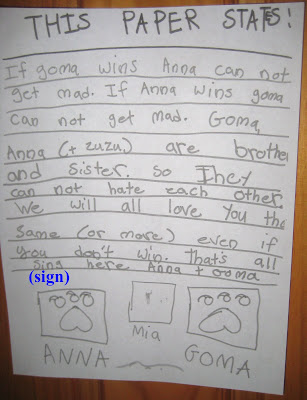 THIS PAPER STATES!
If goma wins Anna can not
get mad. If Anna wins goma
can not get mad. Goma,
Anna (+ zuzu) are brother
and sister. so They
can not hate each other.
We will all love you the
same (or more) even if
you don't win. That's all
sing here Anna + goma
(sign)
Mia
ANNA
GOMA